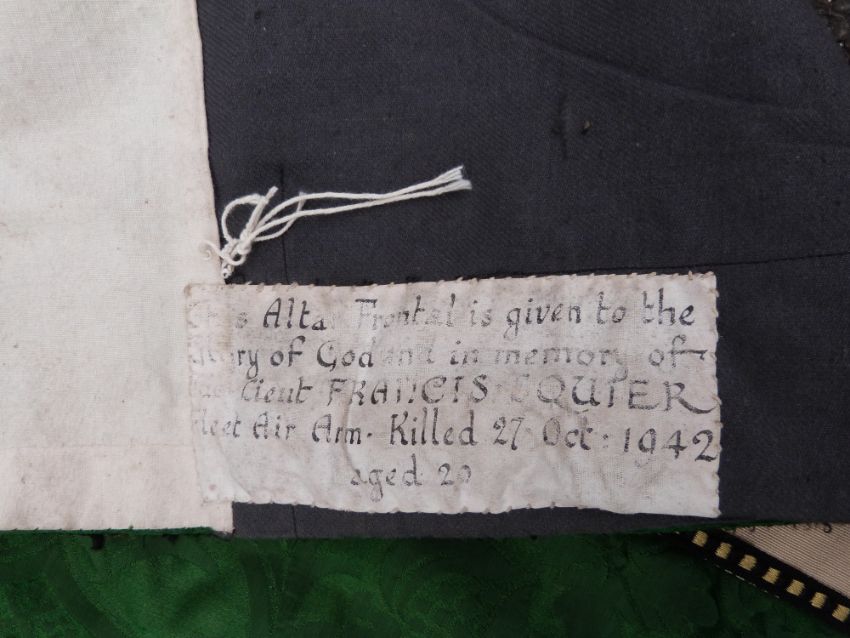 This Altar Frontal is given to the
Glory of God and in memory of
Lieut FRANCIS
Fleet Air Arm. Killed 27 Oct: 1942
aged 20